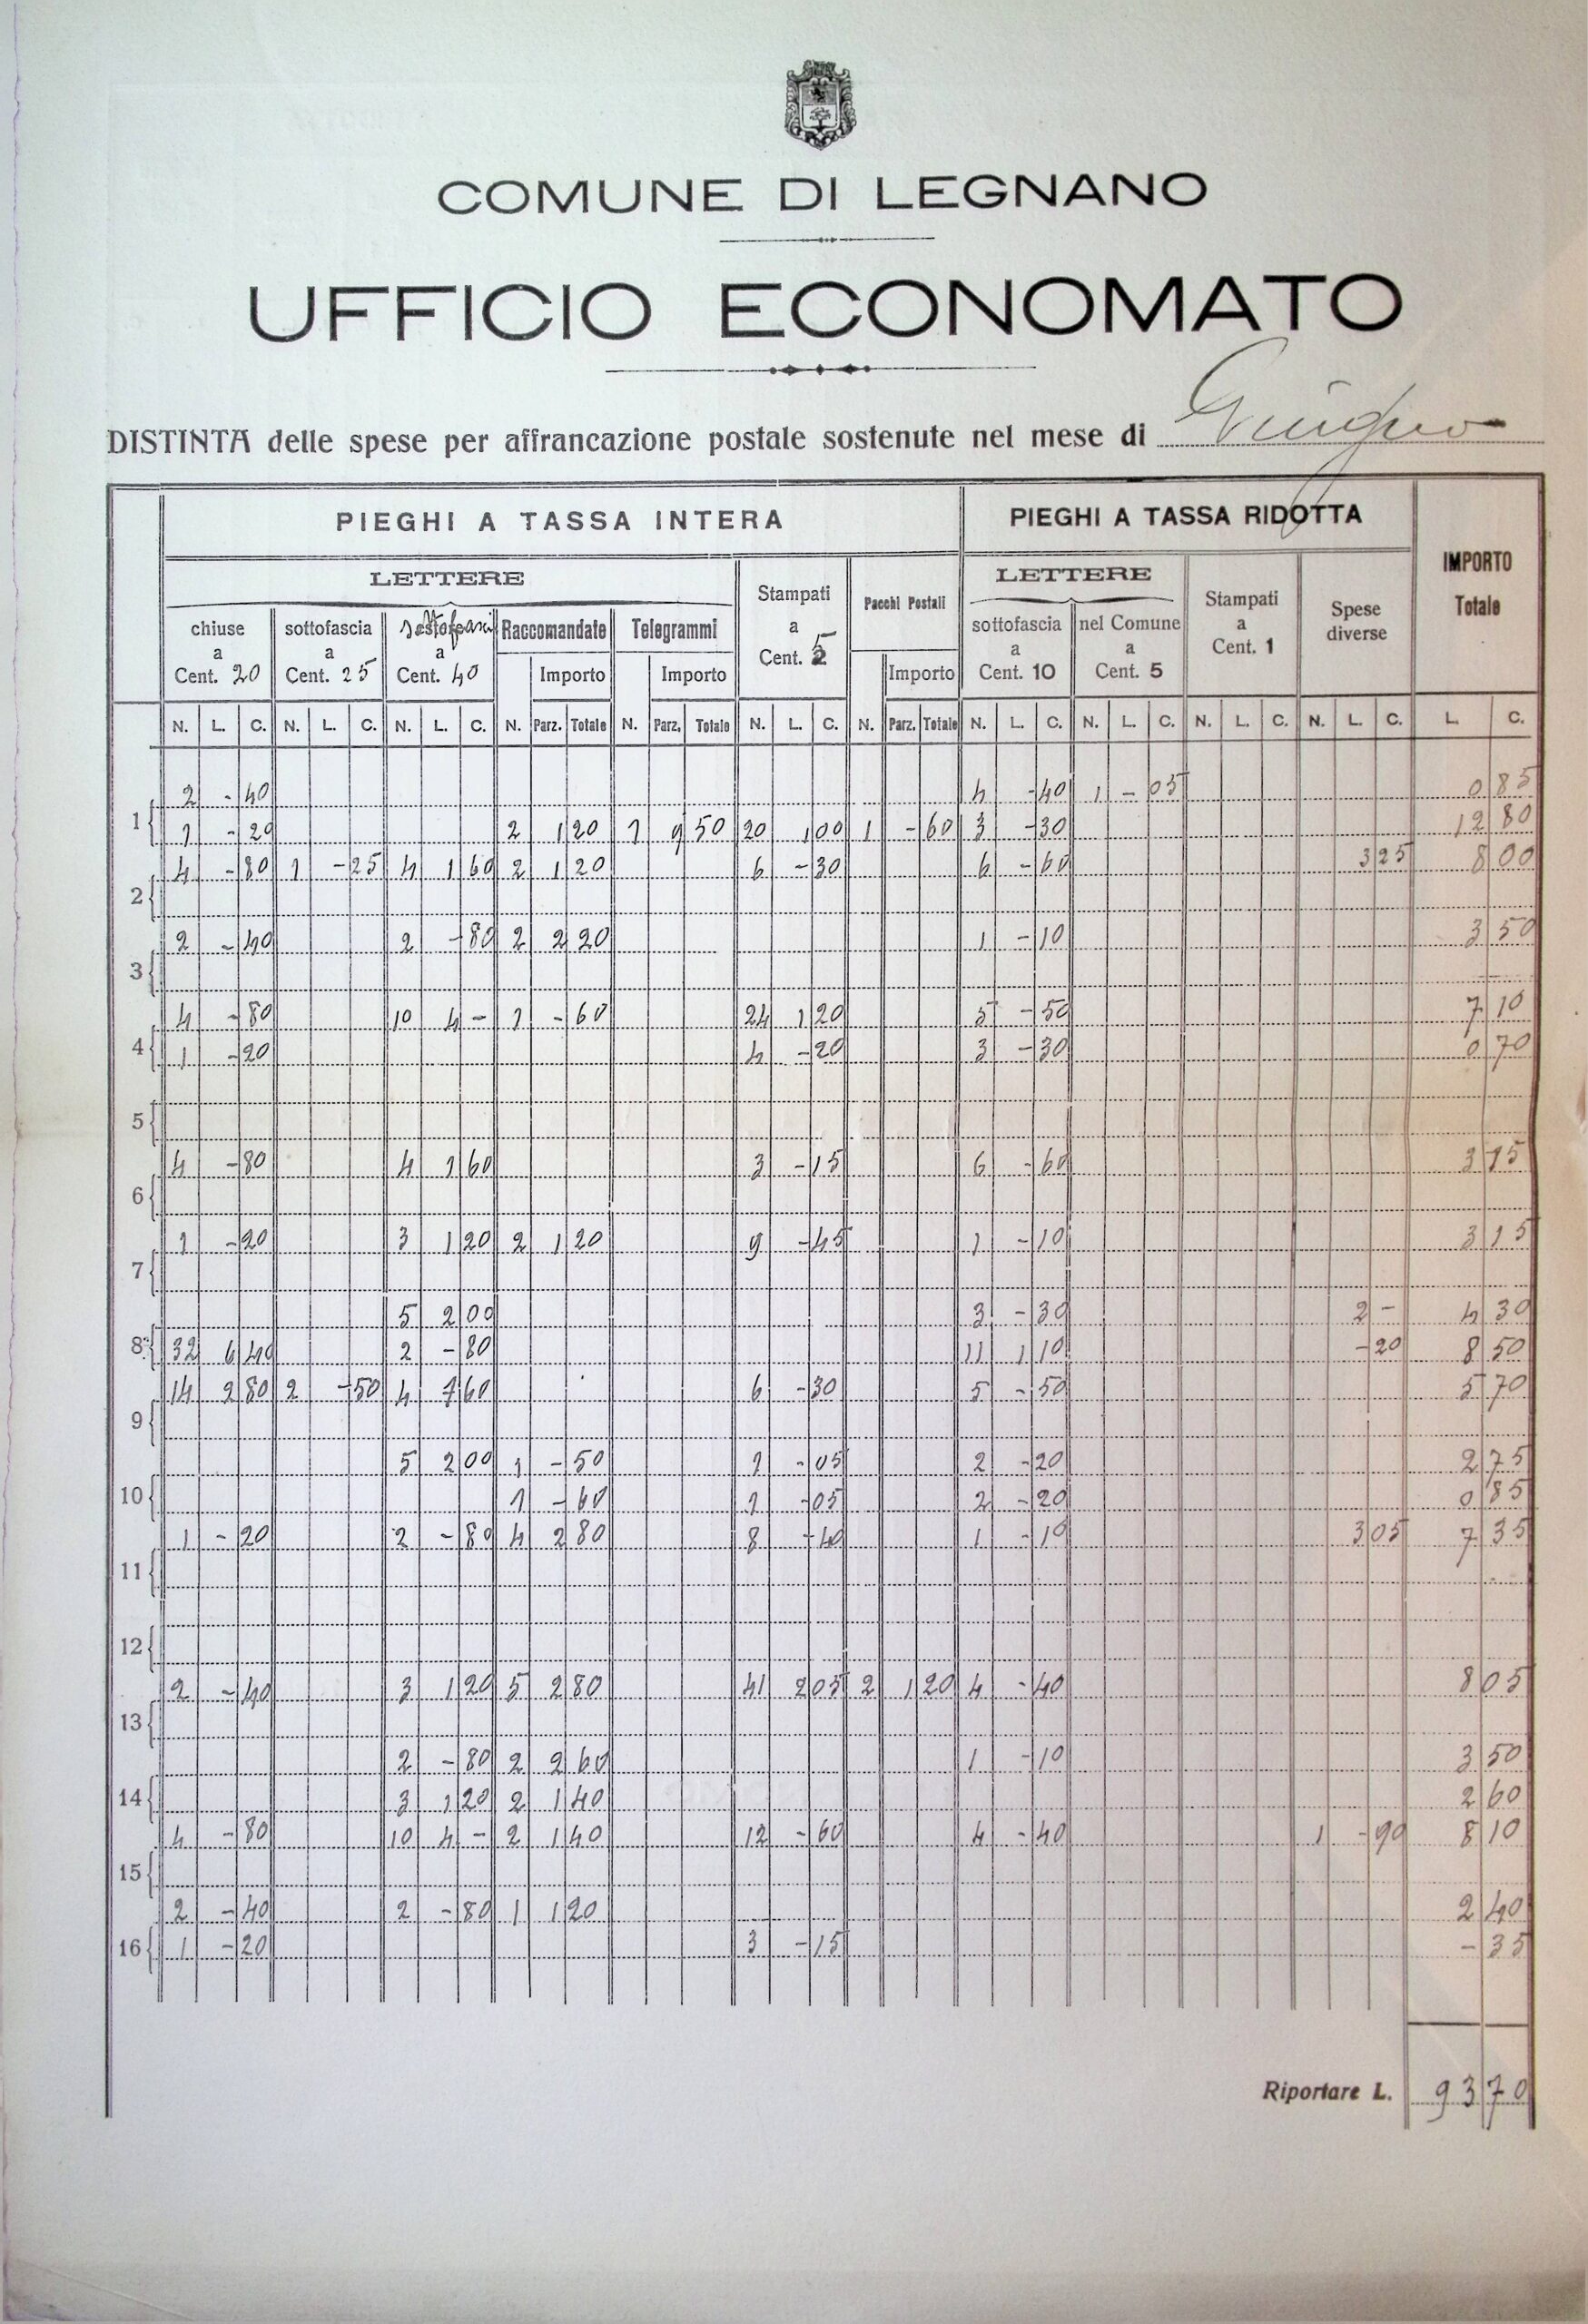 COMUNE DI LEGNANO
UFFICIO ECONOMATO
DISTINTA delle spese per affrancazione postale sostenute nel mese di Giugno
PIEGHI A TASSA INTERA PIEGHI A TASSA RIDOTTA IMPORTO Totale
LETTERE Stampati a Cent. 5 Pacchi Postali LETTERE Stampati a Cent. 1 Spese diverse
chiuse a Cent. 20 sottofascia a Cent. 25 a Cent. 40 Raccomandate Telegrammi sottofascia a Cent. 10 nel Comune a Cent. 5
Importo Importo Importo
N. L. C. N. L. C. N. L. C. N. Parz. Totale N. Parz. Totale N. L. C. N. Parz. Totale N. L. C. N. L. C. N. L. C. N. L. C. L. C.
2 - 40 4 - 40 1 - 05 0 85
1 1 - 20 2 1 20 1 9 50 20 1 00 1 - 60 3 - 30 12 80
4 - 80 1 - 25 4 1 60 2 1 20 6 - 30 6 - 60 3 25 8 00
2
2 - 40 2 - 80 2 2 20 1 - 10 3 50
3
4 - 80 10 4 - 1 - 60 24 1 20 5 - 50 7 10
4 1 - 20 4 - 20 3 - 30 0 70
5
4 - 80 4 1 60 3 - 15 6 - 60 3 15
6
1 - 20 3 1 20 2 1 20 9 - 45 1 - 10 3 15
7
5 2 00 3 - 30 2 - 4 30
8 32 6 40 2 - 80 11 1 10 - 20 8 50
14 2 80 2 - 50 4 1 60 6 - 30 5 - 50 5 70
9
5 2 00 1 - 50 1 - 05 2 - 20 2 75
10 1 - 60 1 - 05 2 - 20 0 85
1 - 20 2 - 80 4 2 80 8 - 40 1 - 10 3 05 7 35
11
12
2 - 40 3 1 20 5 2 80 41 2 05 2 1 20 4 - 40 8 05
13
2 - 80 2 2 60 1 - 10 3 50
14 3 1 20 2 1 40 2 60
4 - 80 10 4 - 2 1 40 12 - 60 4 - 40 1 - 90 8 10
15
2 - 40 2 - 80 1 1 20 2 40
16 1 - 20 3 - 15 - 35
Riportare L. 93 70